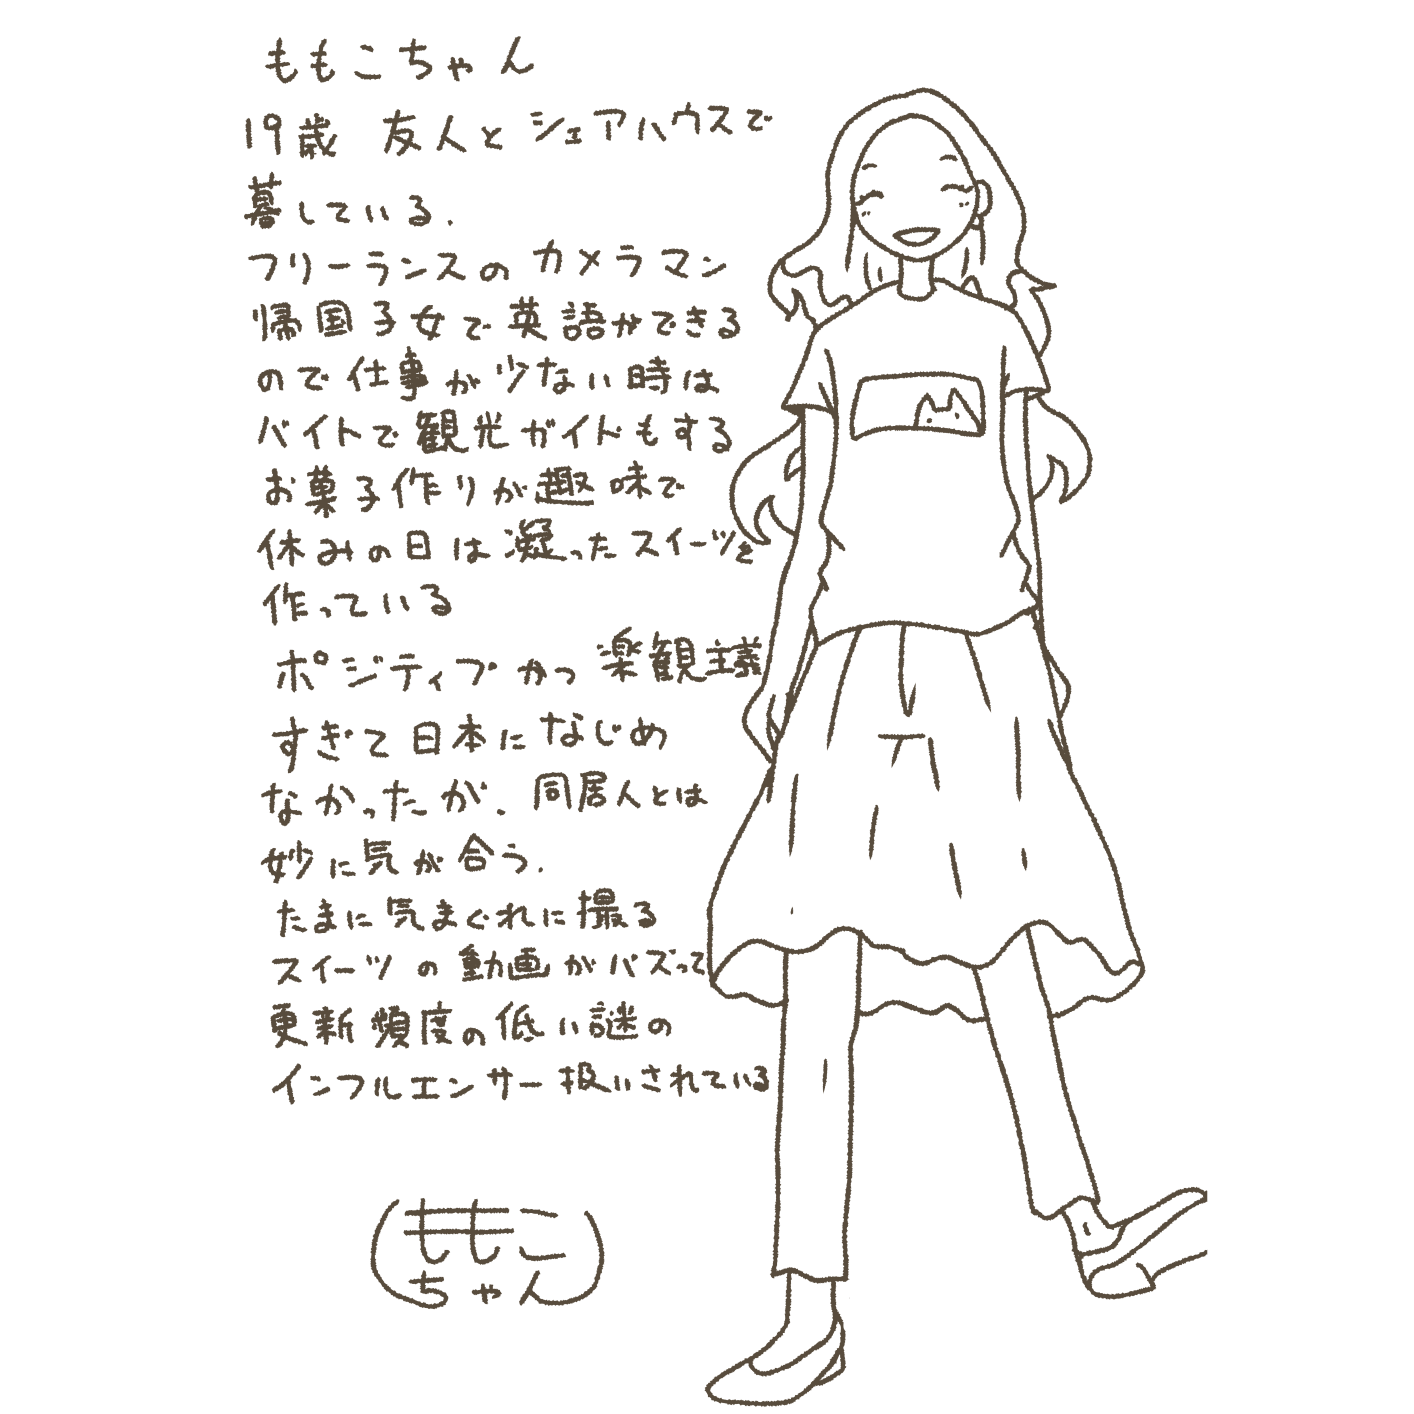 ももこちゃん
19歳 友人とシェアハウスで
暮している.
フリーランスのカメラマン
帰国子女で英語ができる
ので仕事が少ない時は
バイトで観光ガイドもする
お菓子作りが趣味で
休みの日は凝ったスイーツを
作っている
ポジティブかつ楽観主義
すぎて日本になじめ
なかったが.同居人とは
妙に気が合う.
たまに気まぐれに撮る
スイーツの動画がバズって
更新頻度の低い謎の
インフルエンサー扱いされている
ももこ
ちゃん